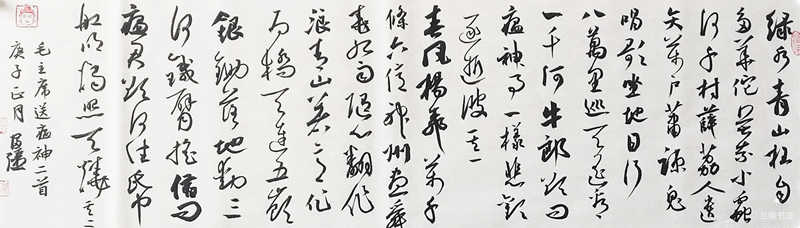 绿水青山枉自
多華佗無奈小蟲
何千村薜荔人遗
矢萬户萧疎鬼
唱歌坐地日行
八萬里巡天遥看
一千河牛郎欲问
瘟神事一樣悲歡
逐逝波 其一
春风楊柳萬千
條六億神州尽舜
尧红雨随心翻作
浪青山著意化
为橋天连五嶺
银鋤落地動三
河鐵臂摇借问
瘟君欲何往帋
船明燭照天燒 其二
毛主席送瘟神二首
庚子正月